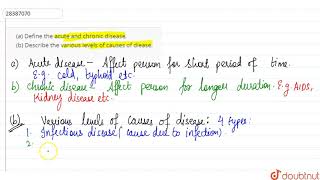 28387070
(a) Define the acute and chronic disease.
(b) Describe the various levels of causes of disease.
a) Acute disease - Affect person for short period of time.
E.g. cold, typhoid etc.
b) chronic disease - Affect person for longer duration. E.g. AIDS,
Kidney disease etc.
(b). Various levels of causes of disease: 4 types:
1. Infectious disease (cause due to infection)
2.
doubtnut